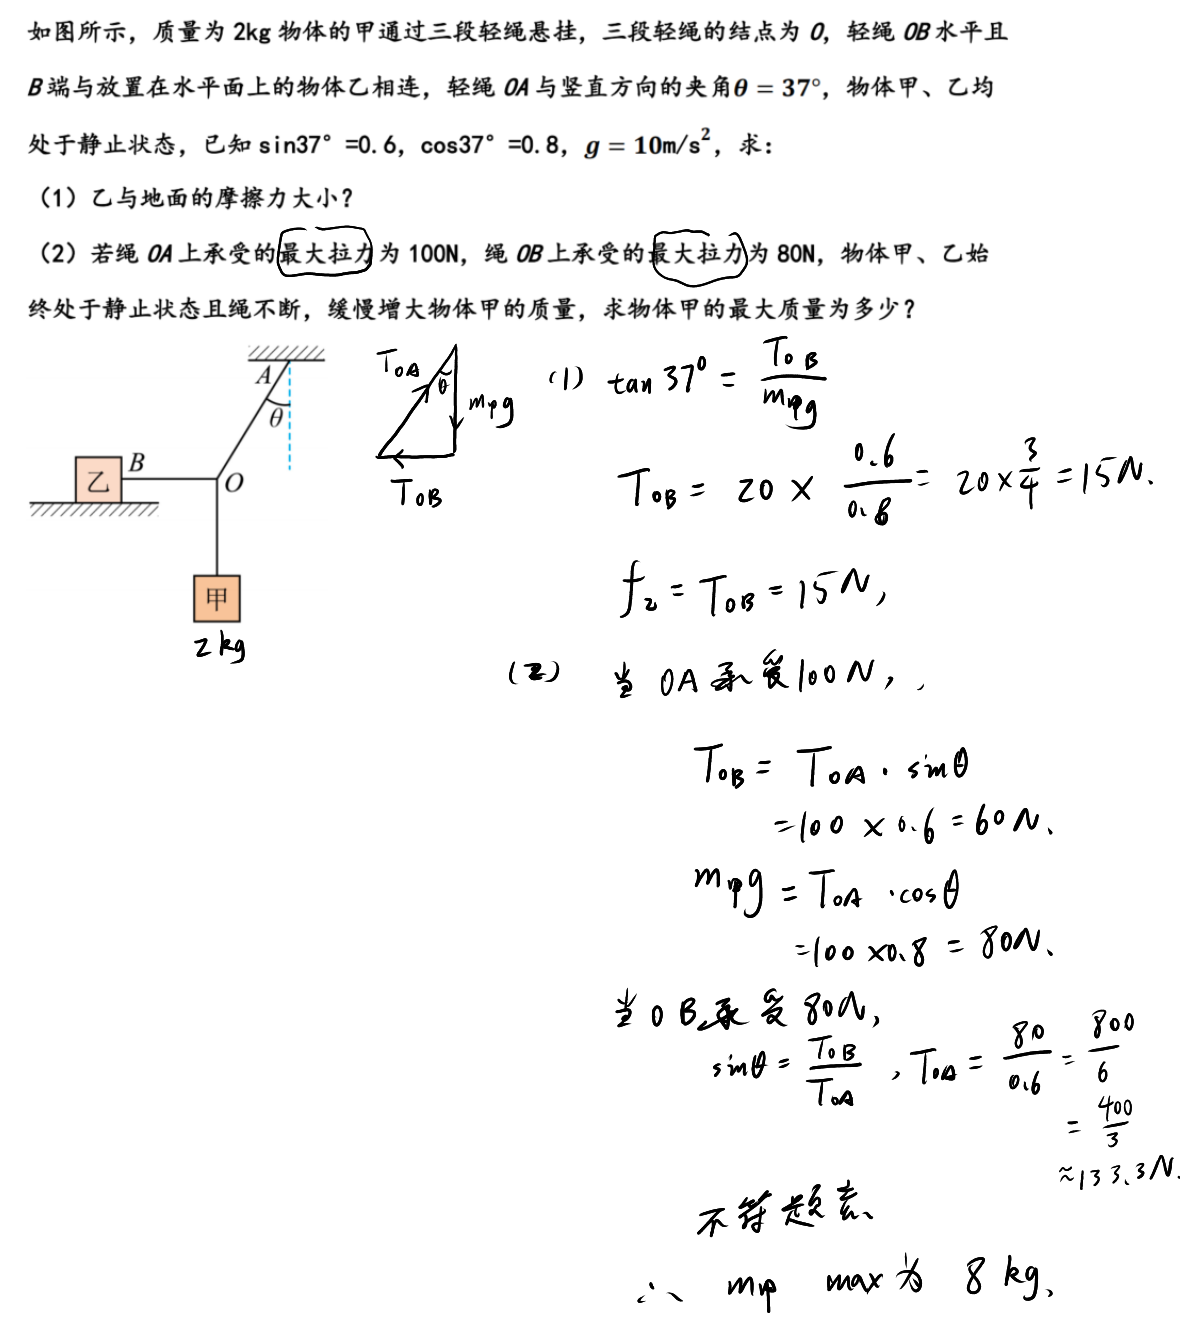 如图所示，质量为 2kg 物体的甲通过三段轻绳悬挂，三段轻绳的结点为 O，轻绳 OB 水平且
B 端与放置在水平面上的物体乙相连，轻绳 OA 与竖直方向的夹角θ = 37°，物体甲、乙均
处于静止状态，已知 sin37° =0.6，cos37° =0.8，g = 10m/s²，求：
（1）乙与地面的摩擦力大小？
（2）若绳 OA 上承受的最大拉力为 100N，绳 OB 上承受的最大拉力为 80N，物体甲、乙始
终处于静止状态且绳不断，缓慢增大物体甲的质量，求物体甲的最大质量为多少？
A
θ
B
乙
O
甲
2kg
T_OA
θ
m甲g
T_OB
(1) tan 37° = T_OB / m甲g
T_OB = 20 × 0.6/0.8 = 20 × 3/4 = 15N.
f乙 = T_OB = 15N,
(2) 当 OA 承受 100N,
T_OB = T_OA · sinθ
= 100 × 0.6 = 60N、
m甲g = T_OA · cosθ
= 100 × 0.8 = 80N、
当 OB 承受 80N,
sinθ = T_OB / T_OA , T_OA = 80/0.6 = 800/6
= 400/3
≈ 133.3N.
不符题意、
∴ m甲 max 为 8 kg、